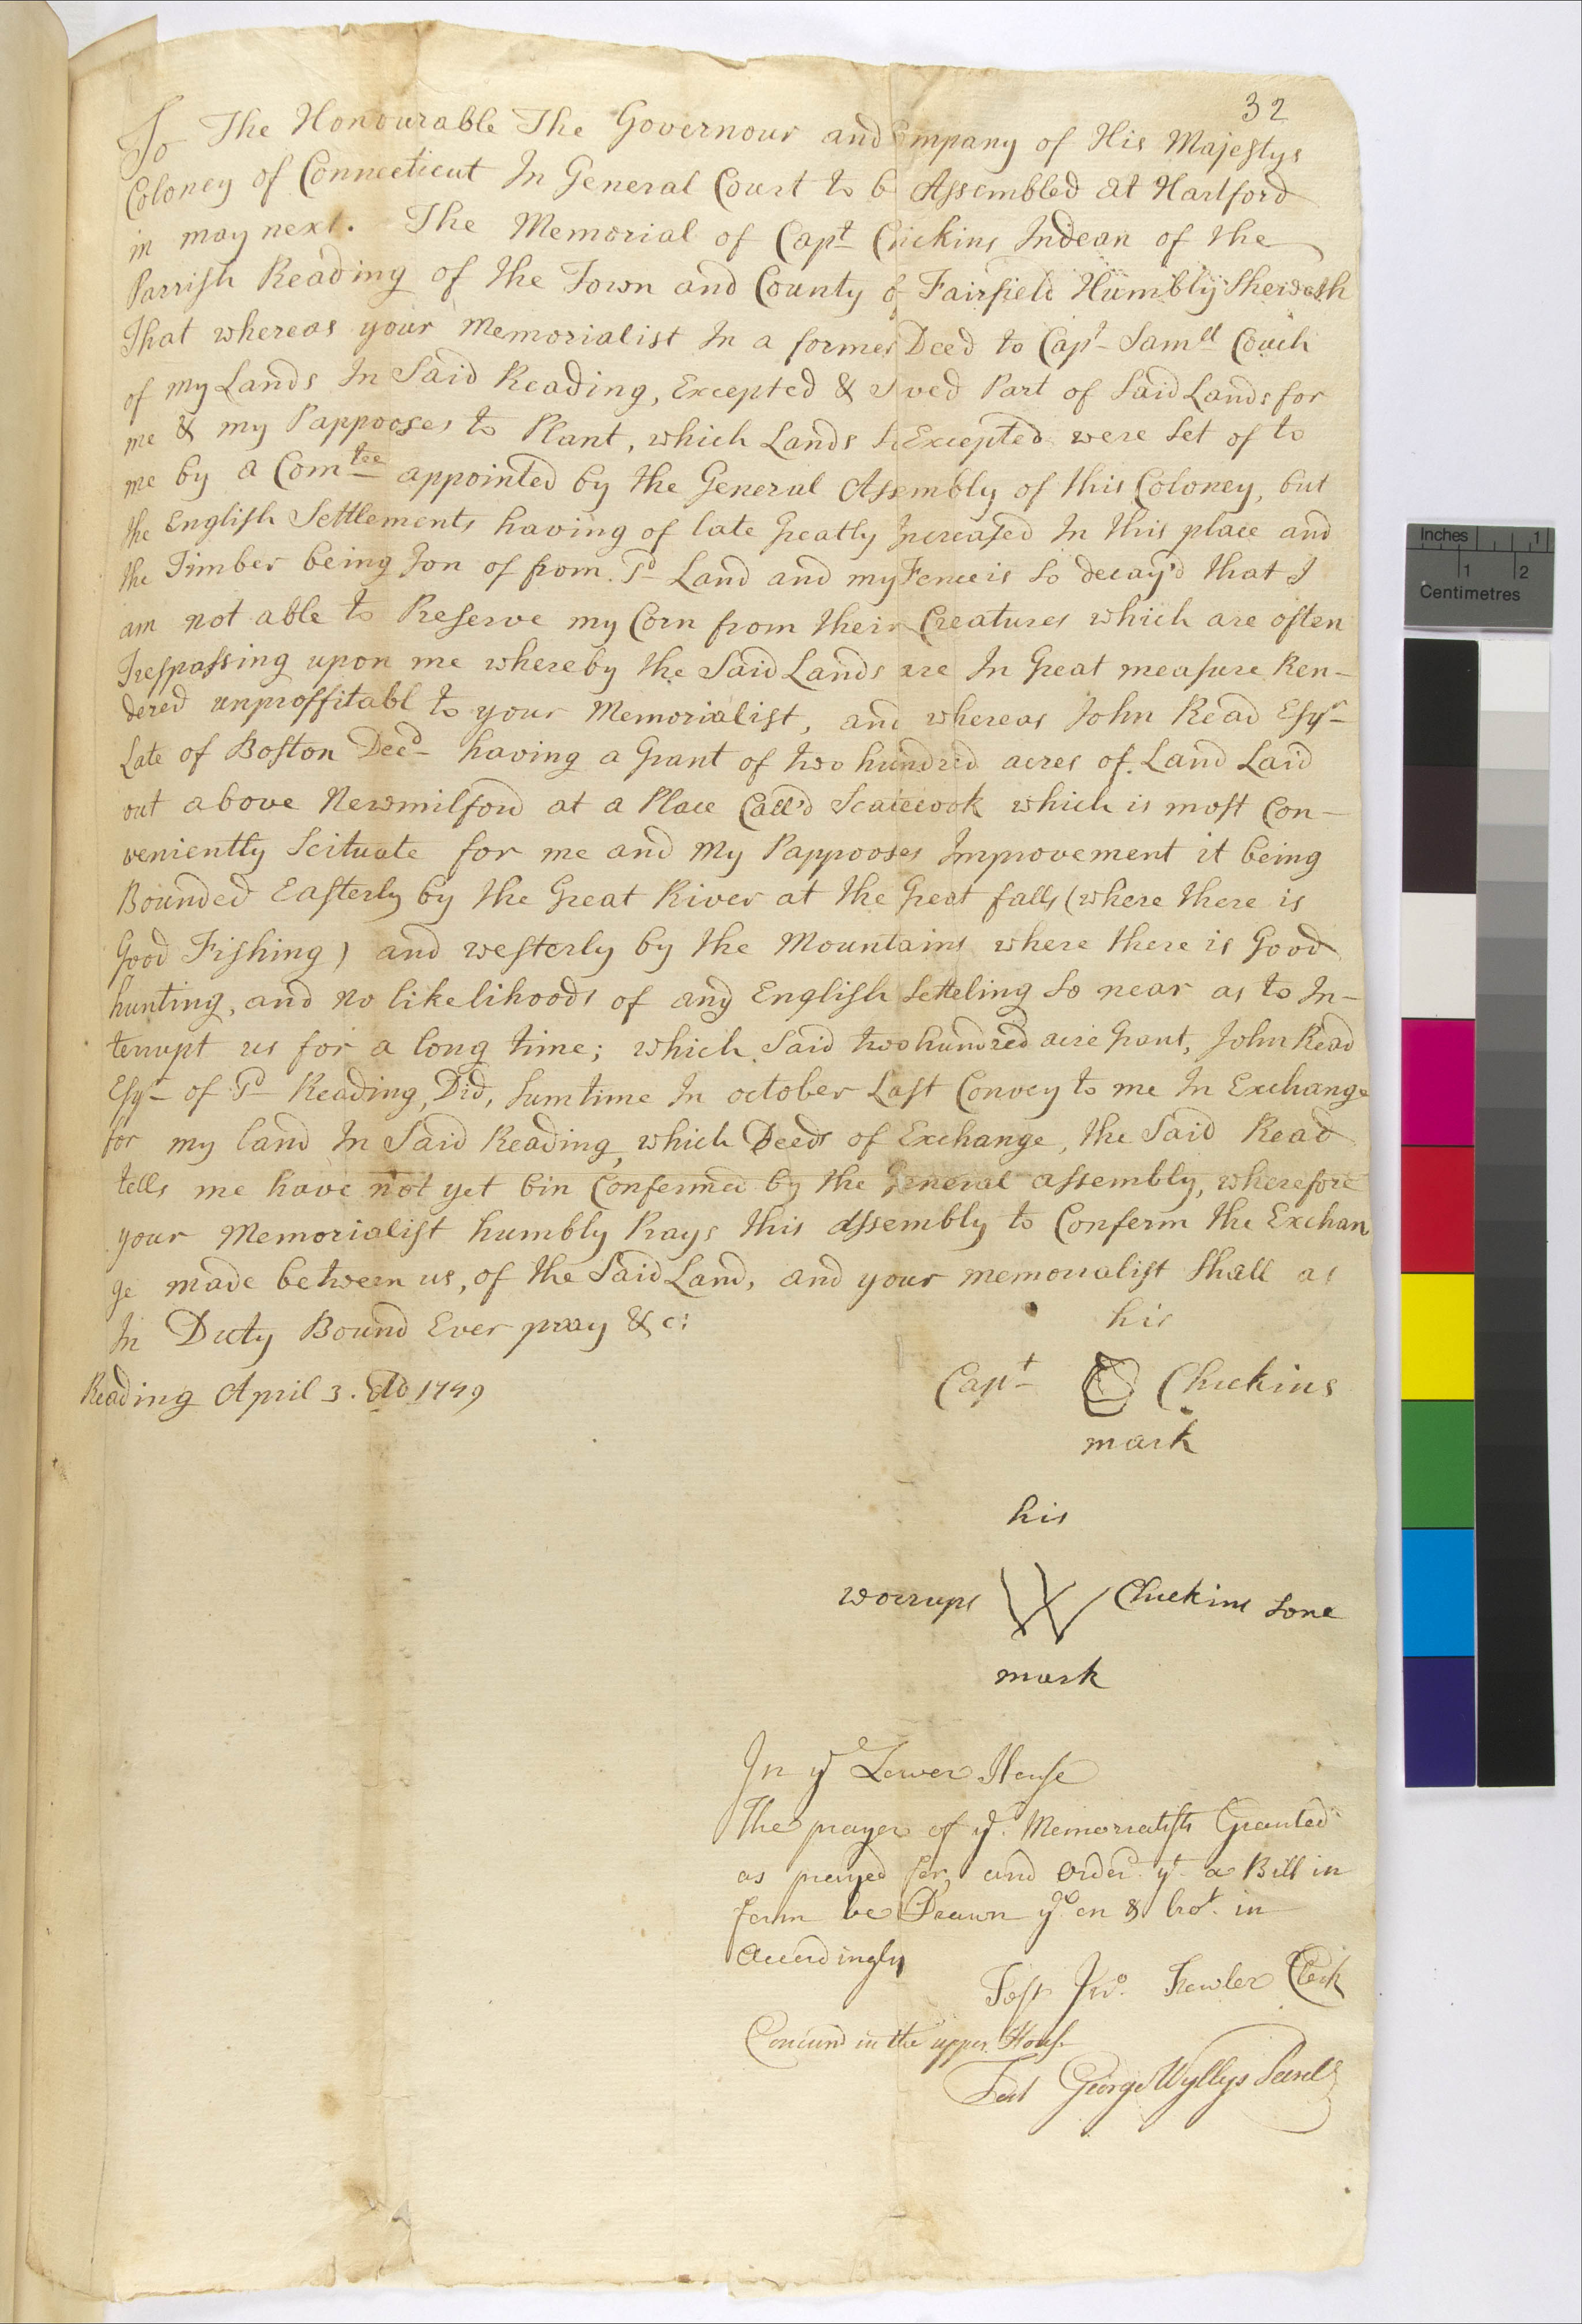 32
To The Honourable The Governour and Company of His Majestys
Coloney of Connecticut In General Court to b Assembled at Hartford
in may next. The Memorial of Capt Chickins Indean of the
Parrish Reading of the Town and County of Fairfield Humbly Sheweth
That whereas your Memorialist In a former Deed to Capt Samll Couch
of my Lands In Said Reading, Excepted & Saved Part of Said Lands for
me & my Pappooses to Plant, which Lands So Excepted were Set of to
me by a Comtee appointed by the General Assembly of this Coloney, but
the English Settlements having of late Greatly Increased In this place and
the Timber being Gon of from Sd Land and my Fence is So decay'd that I
am not able to Preserve my Corn from their Creatures which are often
Trespassing upon me whereby the Said Lands are In Great measure Ren-
dered unproffitabl to your Memorialist, and whereas John Read Esqr
Late of Boston Decd having a Grant of two hundred acres of Land Laid
out above Newmilford at a Place Call'd Scaticook which is most Con-
veniently Scituate for me and my Pappooses Improvement it being
Bounded Easterly by the Great River at the Great falls (where there is
Good Fishing) and westerly by the Mountains where there is Good
hunting, and no likelihoods of any English Setteling So near as to In-
terrupt us for a long time; which Said two hundred acre Grant, John Read
Esqr of Sd Reading, Did, Sumtime In october Last Convey to me In Exchange
for my land In Said Reading, which Deeds of Exchange, the Said Read
tells me have not yet bin Confermed by the General assembly, wherefore
your Memorialist humbly Prays this Assembly to Conferm the Exchan
ge made between us, of the Said Land, and your memorialist Shall as
In Duty Bound Ever pray &c:
his
Reading April 3. AD 1749
Capt Chickins
mark
his
worrups Chickins Sone
mark
In ye Lower House
The prayer of ye Memorialists Granted
as prayed for, and order yt a Bill in
form be Drawn yr on & brot in
Accordingly
Test Jno. Fowler Clerk
Concurd in the upper House
Test George Wyllys Secrety
Inches 1
1 2
Centimetres